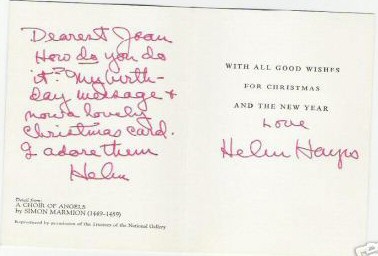 Dearest Joan
How do you do
it? My birth-
day message &
now a lovely
Christmas card.
I adore them
Helen
Detail from:
A CHOIR OF ANGELS
by SIMON MARMION (1449-1489)
Reproduced by permission of the Trustees of the National Gallery
WITH ALL GOOD WISHES
FOR CHRISTMAS
AND THE NEW YEAR
Love
Helen Hayes